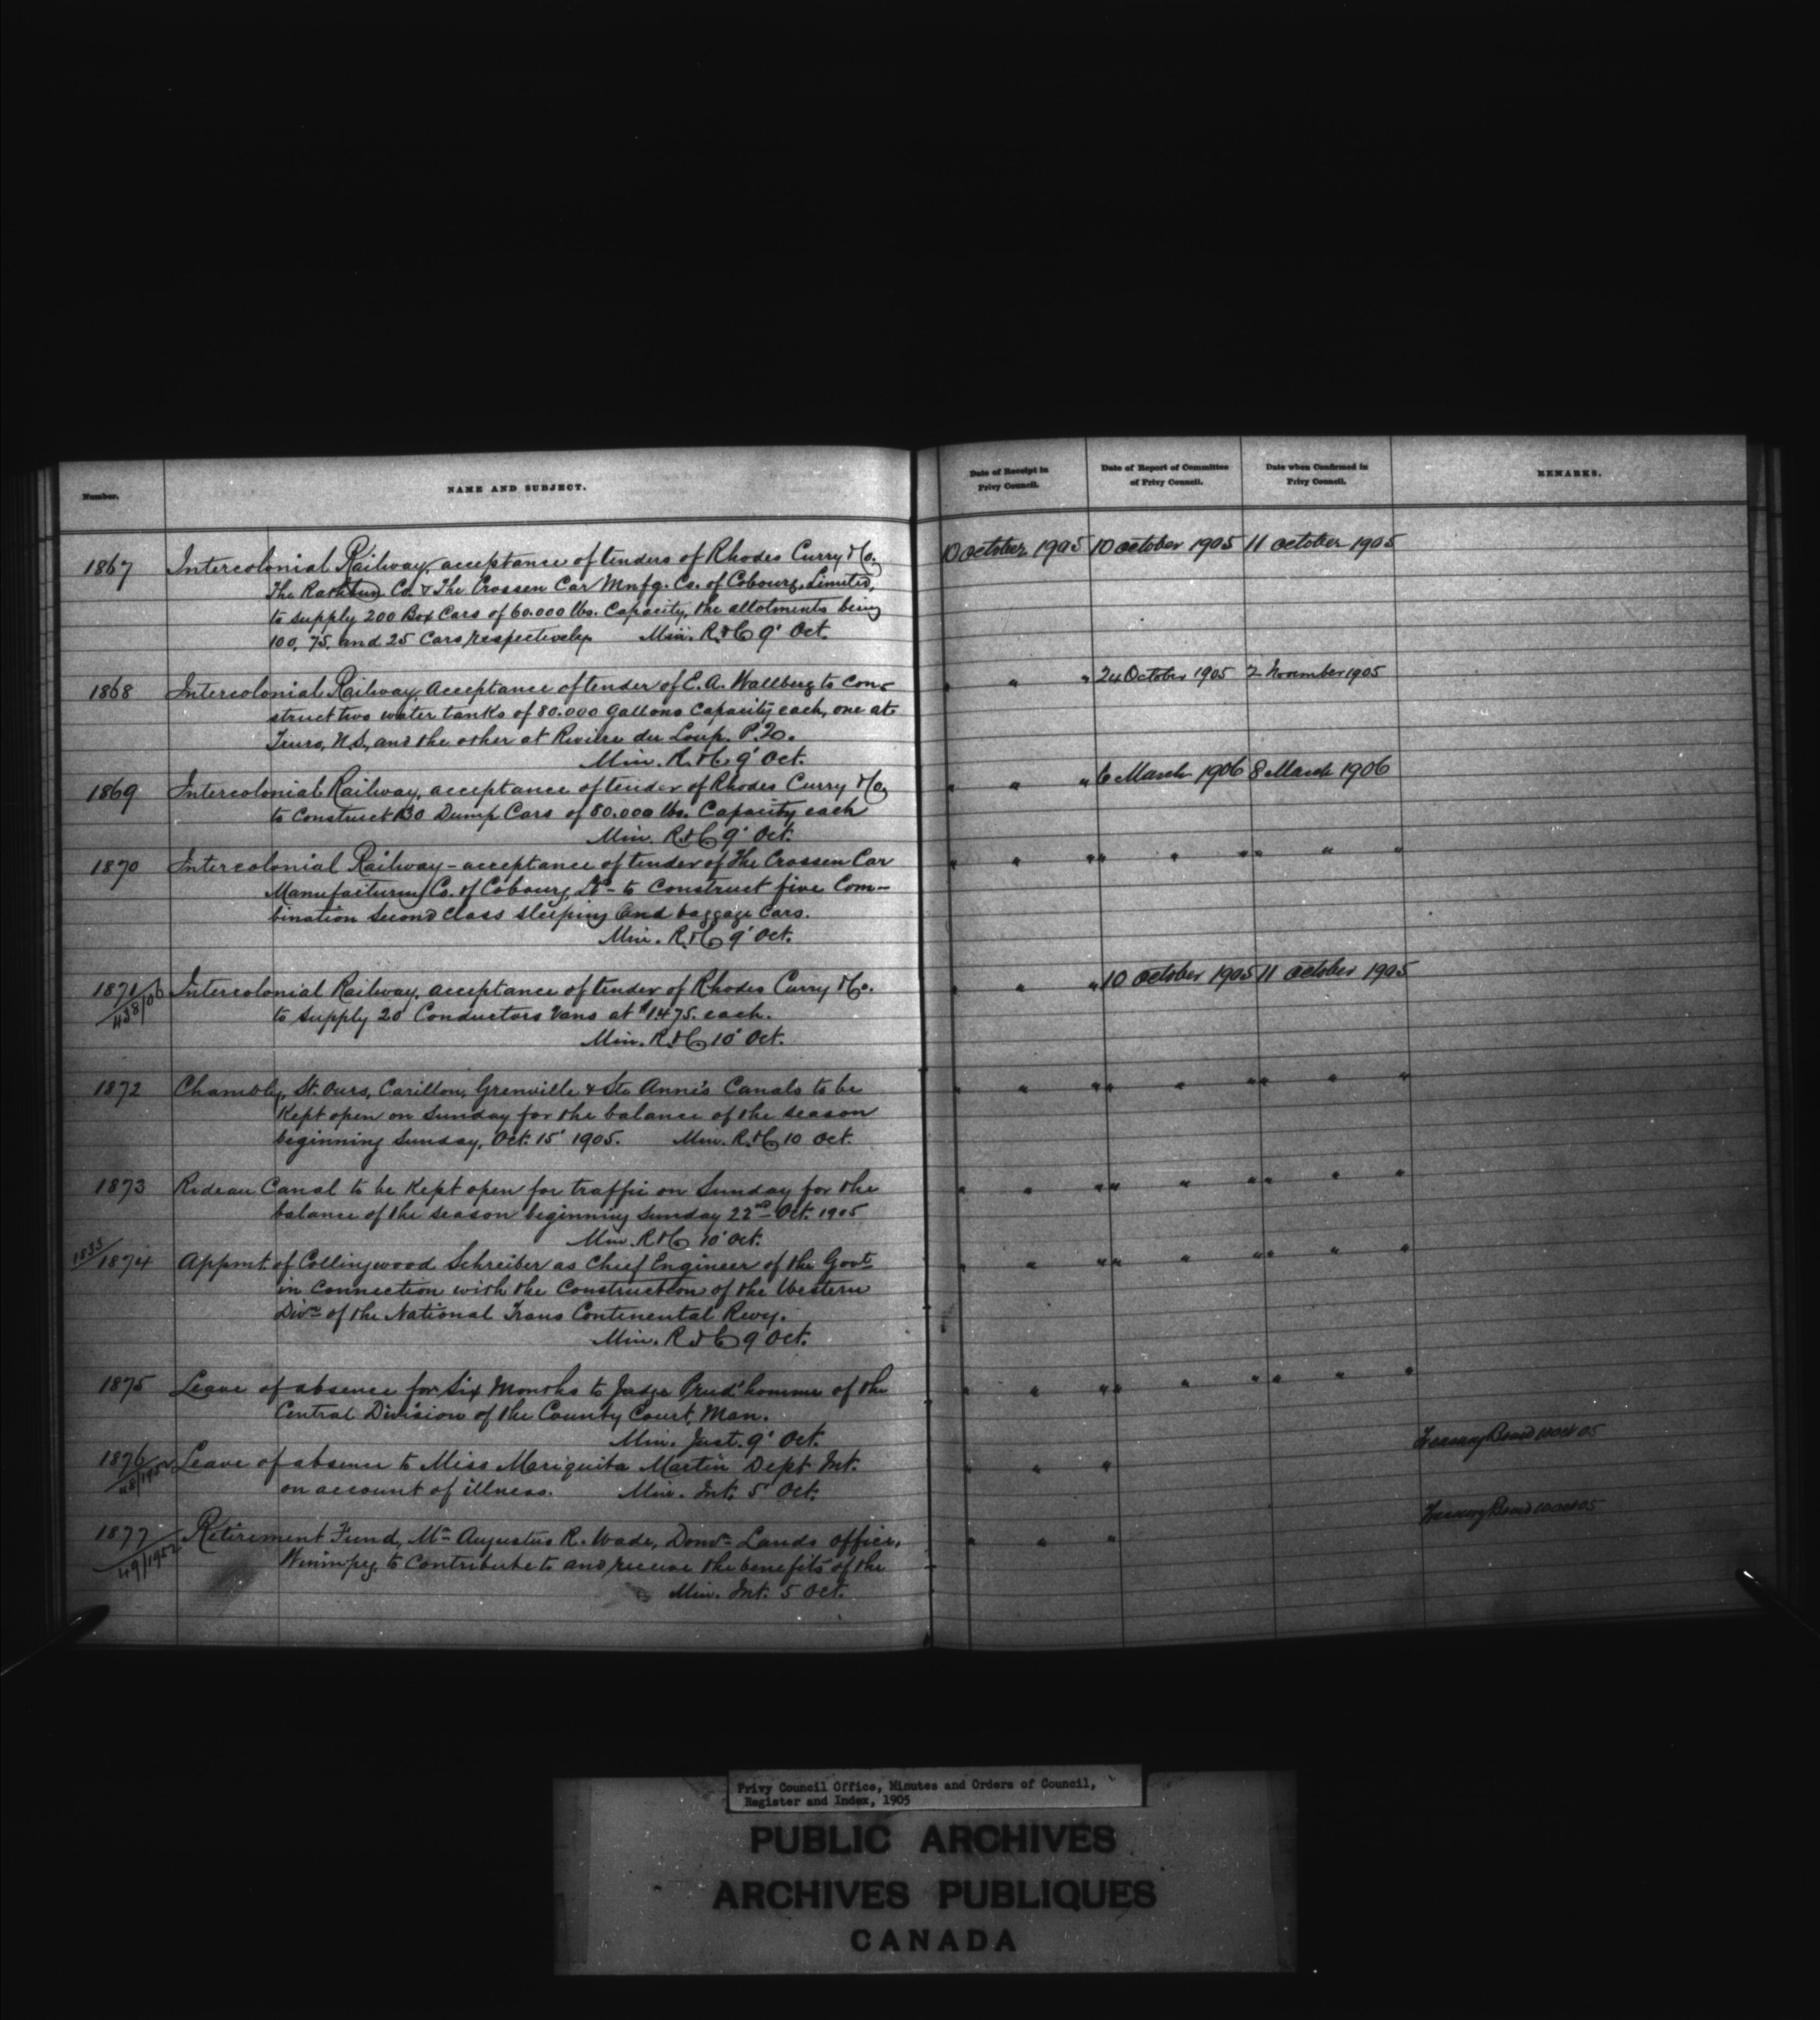 Number.
NAME AND SUBJECT.
Date of Receipt in Privy Council.
Date of Report of Committee of Privy Council.
Date when Confirmed in Privy Council.
REMARKS.
1867 Intercolonial Railway, acceptance of tenders of Rhodes Curry & Co. 10 October 1905 10 October 1905 11 October 1905
The Rathbun Co. & The Crossen Car Mnfg. Co. of Cobourg, Limited,
to supply 200 Box Cars of 60.000 lbs. Capacity, the allotments being
100, 75, and 25 Cars respectively. Min. R. & C 9' Oct.
1868 Intercolonial Railway, Acceptance of tender of E. A. Wallberg to con- " " " 24 October 1905 2 November 1905
struct two water tanks of 80.000 gallons capacity each, one at
Truro, N.S, and the other at Riviere du Loup. P.Q.
Min. R. & C, 9' Oct.
1869 Intercolonial Railway, acceptance of tender of Rhodes Curry & Co, " " " 6 March 1906 8 March 1906
to construct 130 Dump Cars of 80.000 lbs. Capacity each
Min. R. & C 9' Oct.
1870 Intercolonial Railway - acceptance of tender of The Crossen Car " " " " " " " " "
Manufacturing Co. of Cobourg, Ltd - to construct five Com-
bination second class sleeping and baggage cars.
Min. R. & C 9' Oct.
1871 Intercolonial Railway, acceptance of tender of Rhodes Curry & Co. " " " 10 October 1905 11 October 1905
438/06 to supply 20 Conductors Vans at $1475. each.
Min. R. & C 10' Oct.
1872 Chambly, St. Ours, Carillon, Grenville & Ste Anne's Canals to be " " " " " " " " "
Kept open on Sunday for the balance of the season
beginning Sunday, Oct. 15' 1905. Min. R. & C 10 Oct.
1873 Rideau Canal to be Kept open for traffic on Sunday for the " " " " " " " " "
balance of the season beginning Sunday 22nd Oct. 1905
Min. R & C 10' Oct.
1874 Appmt of Collingwood Schreiber as Chief Engineer of the Govt " " " " " " " " "
in connection with the Construction of the Western
Divn of the National Trans Continental Rwy.
Min. R & C 9 Oct.
1875 Leave of absence for Six Months to Judge Prud'homme of the " " " " " " " " "
Central Division of the County Court, Man.
Min. Just. 9' Oct.
1876 Leave of absence to Miss Mariquita Martin Dept Int. " " " Treasury Board 10 Oct 05
on account of illness. Min. Int. 5' Oct.
1877 Retirement Fund, Mr Augustus R. Wade, Domn Lands office, " " " Treasury Board 10 Oct 05
49/1952 Winnipeg, to contribute to and receive the benefits of the
Min. Int. 5 Oct.
Privy Council Office, Minutes and Orders of Council,
Register and Index, 1905
PUBLIC ARCHIVES
ARCHIVES PUBLIQUES
CANADA